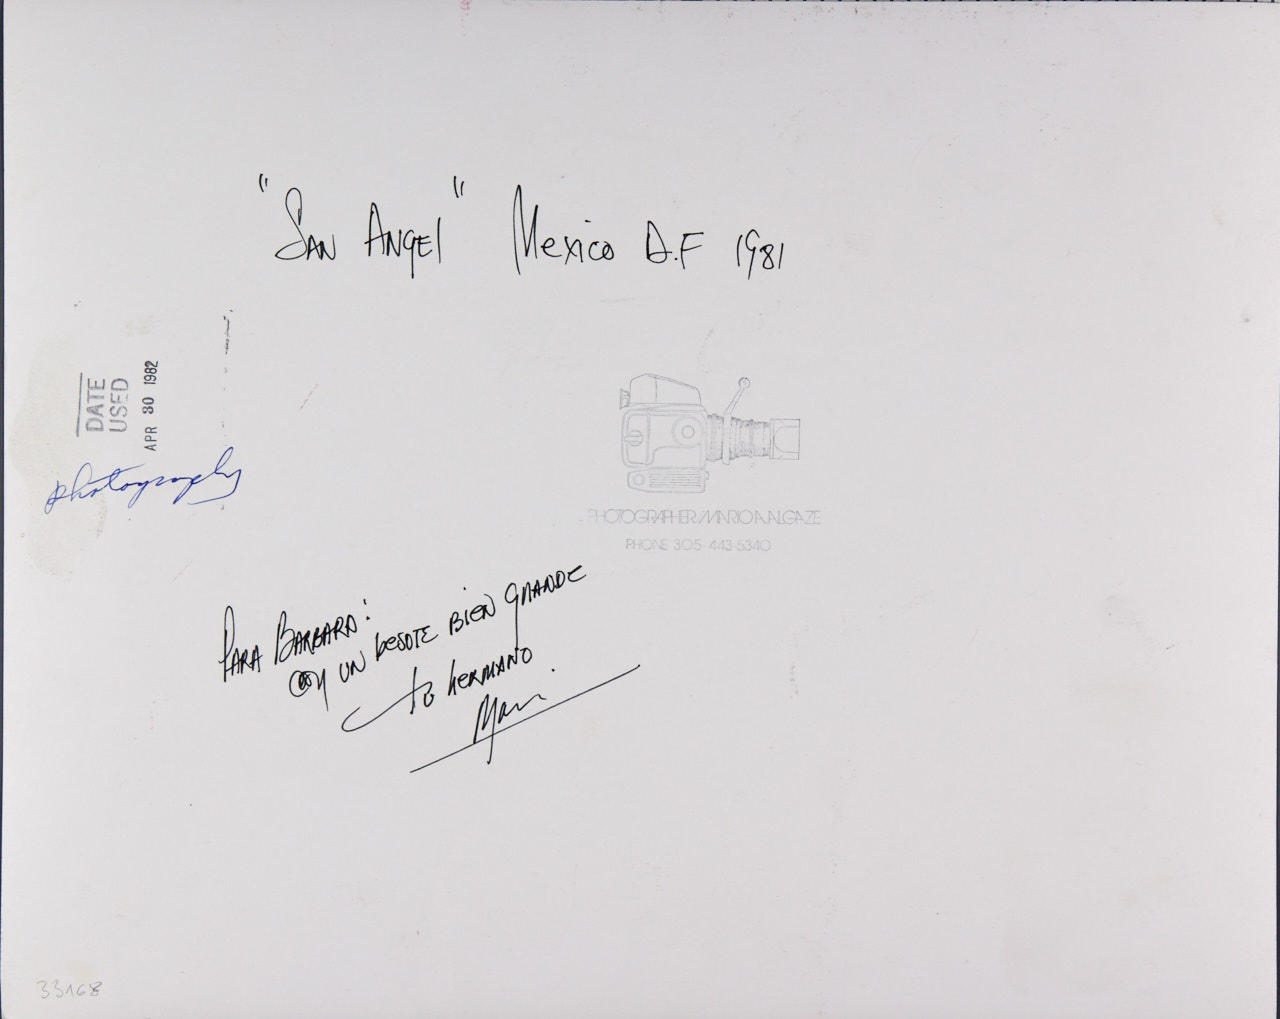 "San Angel" Mexico D.F 1981
DATE
USED
APR 30 1982
photography
PHOTOGRAPHER/MARIO ALGAZE
PHONE 305-443-5340
PARA BARBARA:
CON UN besote BIEN GRANDE
tu hermano
Mario
33168